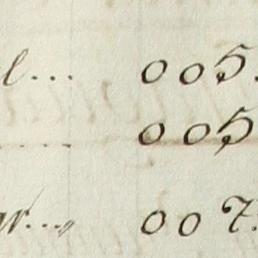 l... 005.
.... 005
... 007.